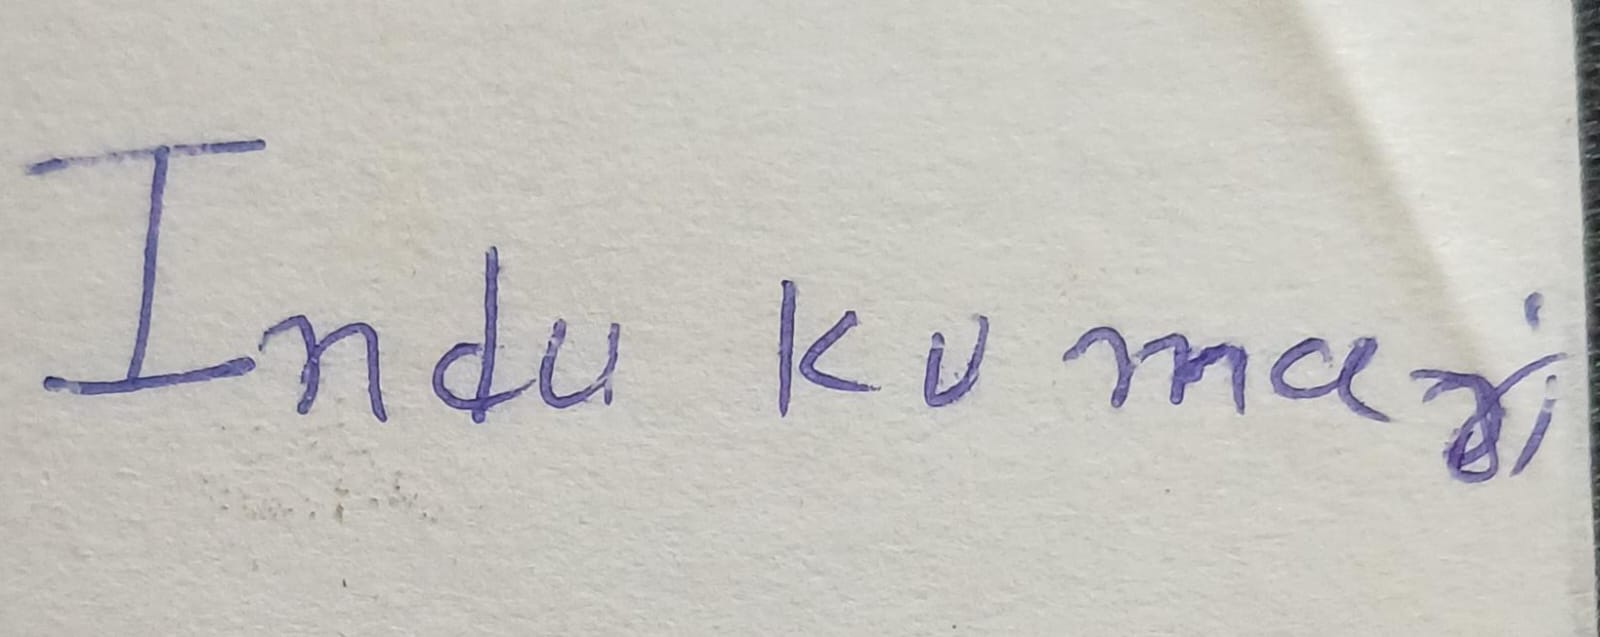 Indu kumari